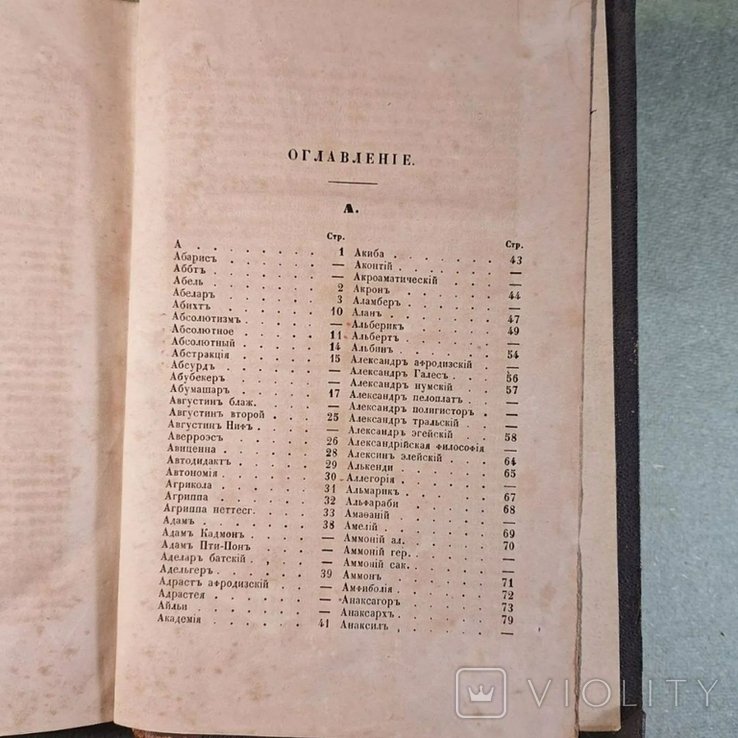 ОГЛАВЛЕНІЕ.
А.
Стр.
А 1
Абарисъ —
Аббтъ —
Абель 2
Абеларъ 3
Абихтъ 10
Абсолютизмъ —
Абсолютное 11
Абсолютный 14
Абстракція 15
Абсурдъ —
Абубекеръ —
Абумашаръ 17
Августинъ блаж. —
Августинъ второй 25
Августинъ Нифъ —
Аверроэсъ 26
Авиценна 28
Автодидактъ 29
Автономія 30
Агрикола 31
Агриппа 32
Агриппа неттесг. 33
Адамъ 38
Адамъ Кадмонъ —
Адамъ Пти-Понъ —
Аделаръ батскій —
Адельгеръ 39
Адрастъ афродизскій —
Адрастея —
Айльи —
Академія 41
Стр.
Акиба 43
Аконтій —
Акроаматическій —
Акронъ 44
Аламберъ —
Аланъ 47
Альберикъ 49
Альбертъ —
Альбинъ 54
Александръ афродизскій —
Александръ Галесъ 56
Александръ нумскій 57
Александръ пелоплатъ —
Александръ полигисторъ —
Александръ тральскій —
Александръ эгейскій 58
Александрійская философія —
Алексинъ элейскій 64
Алькенди 65
Аллегорія —
Альмарикъ 67
Альфараби 68
Амаѳаній —
Амелій 69
Аммоній ал. 70
Аммоній гер. —
Аммоній сак. —
Аммонъ 71
Амфиболія 72
Анаксагоръ 73
Анаксархъ 79
Анаксилъ —
VIOLITY